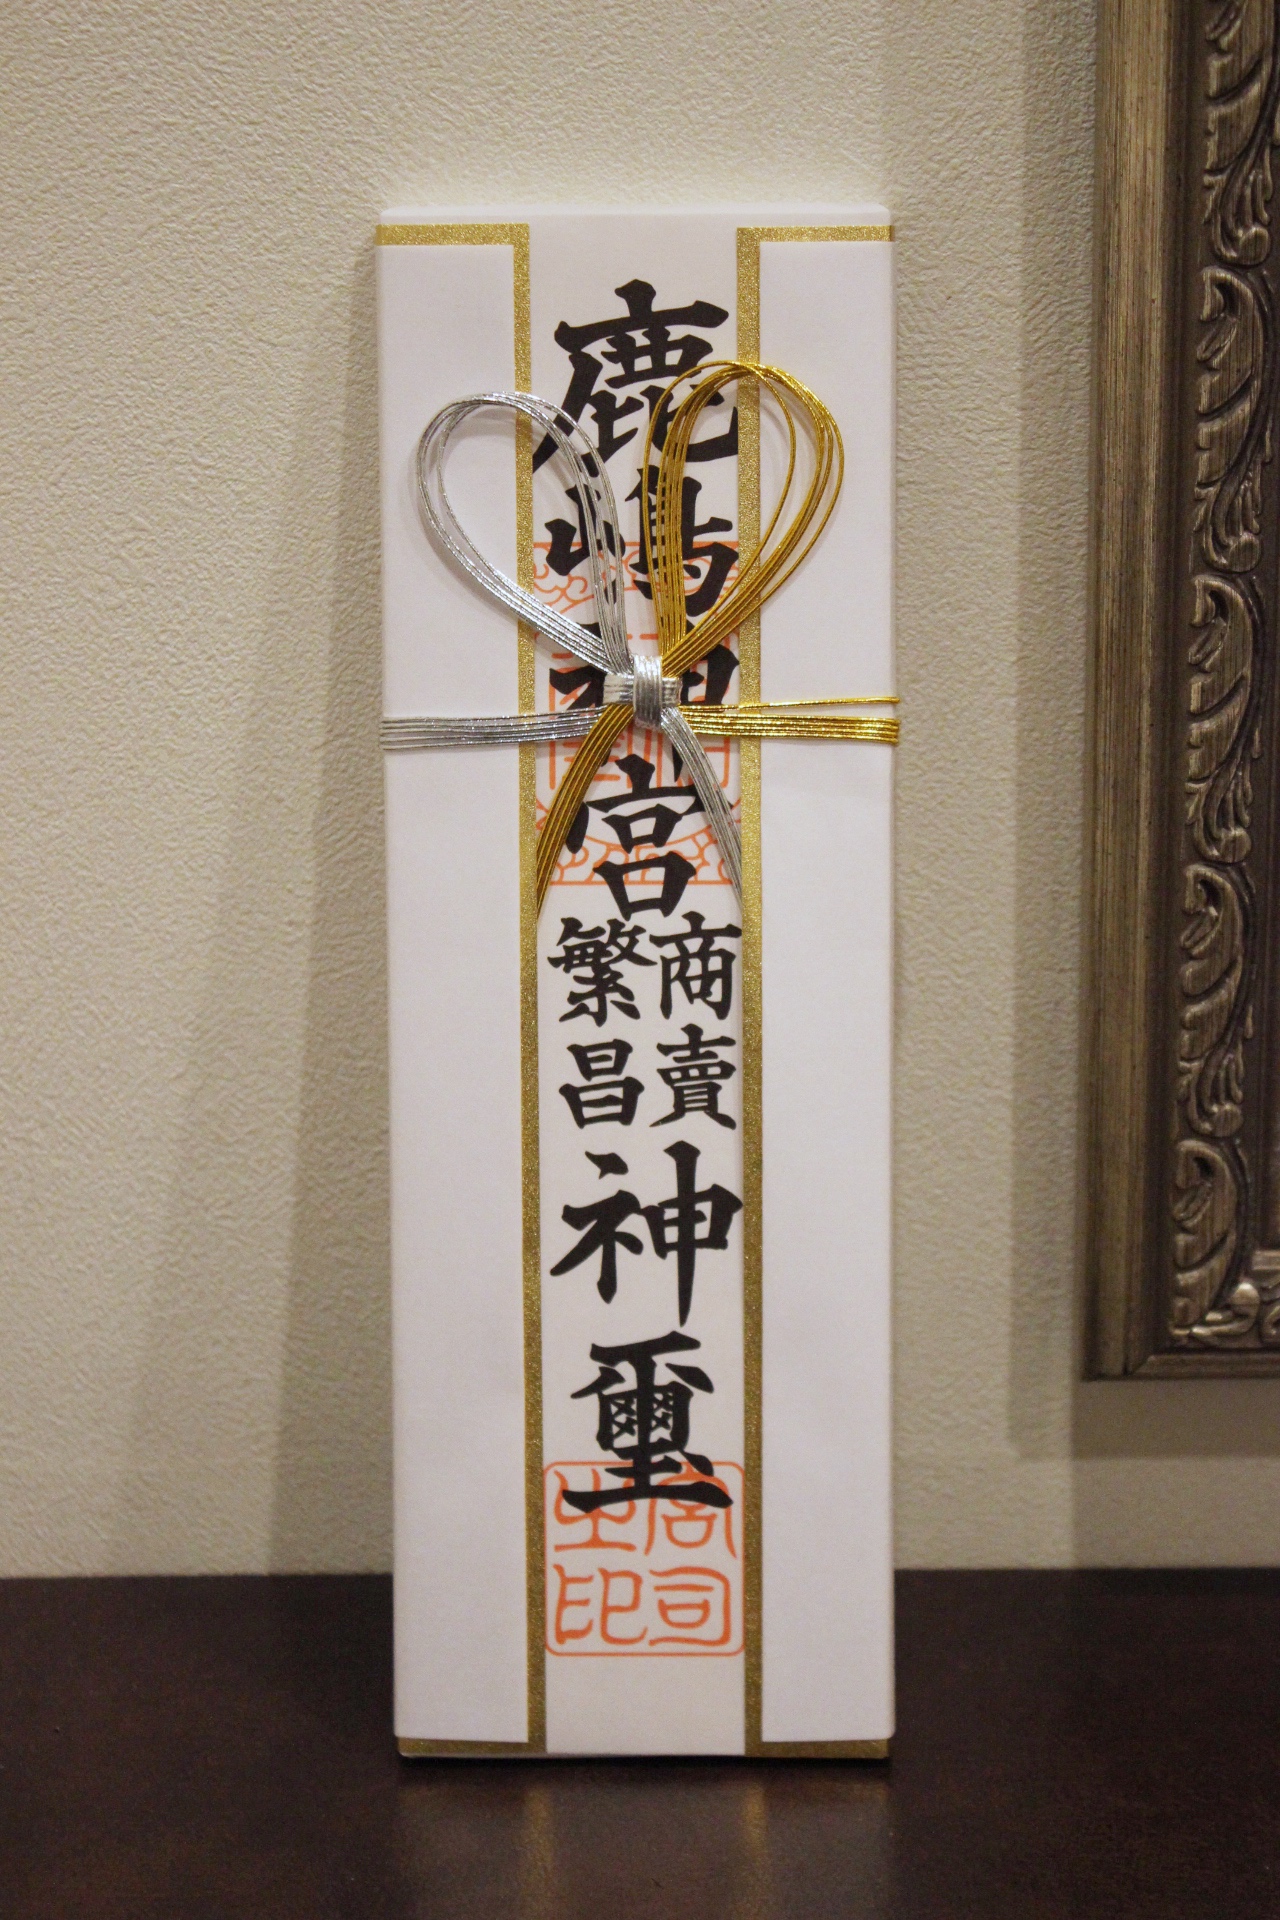 鹿嶋神宮
商賣
繁昌
神璽
宮司
之印